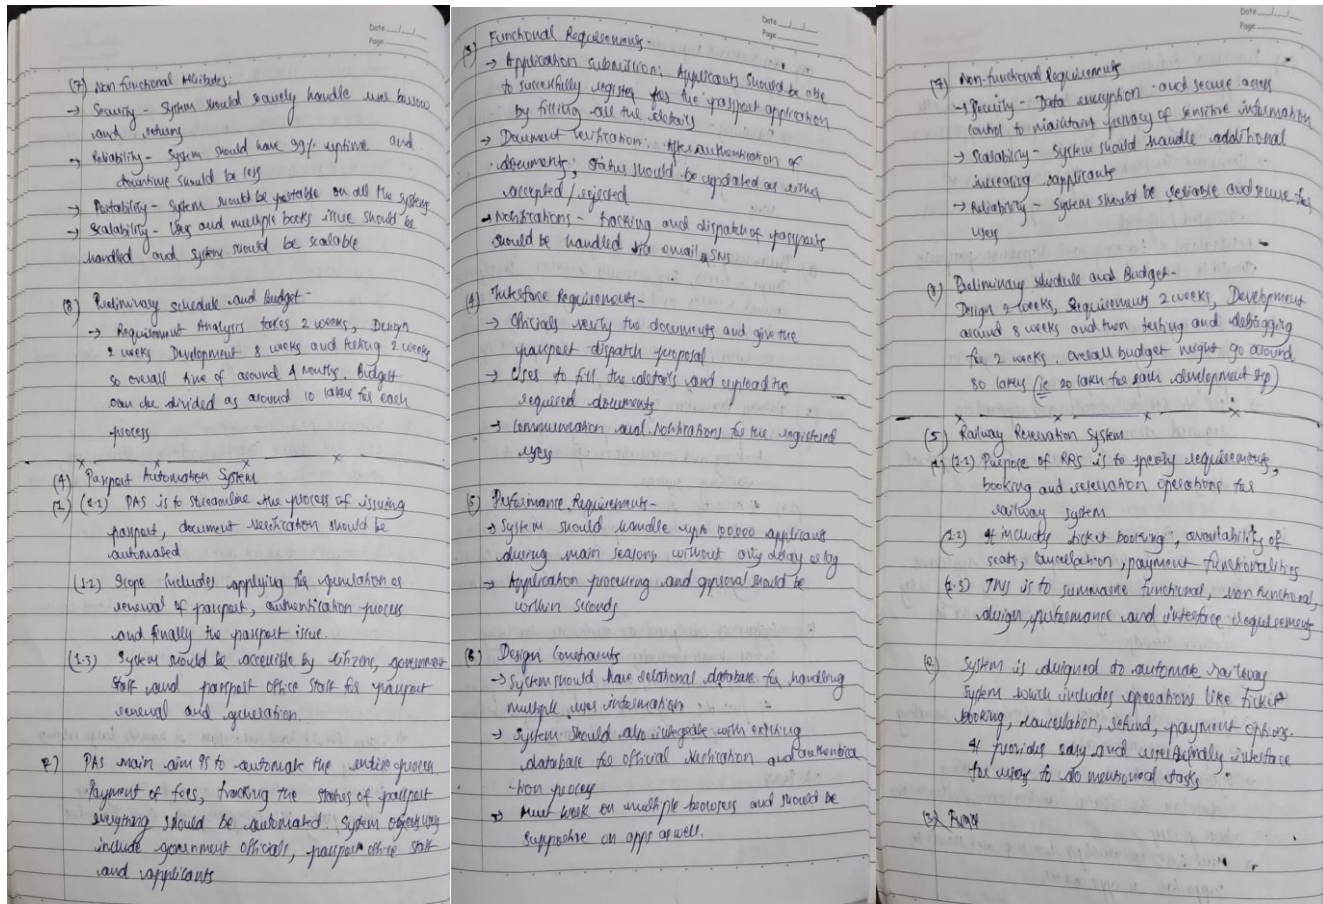 Date
Page
(7) Non functional Attributes:
→ Security - System should securely handle user borrow
and returns
→ Reliability - System should have 99% uptime and
downtime should be less
→ Portability - System should be portable on all the systems
→ Scalability - User and multiple books issue should be
handled and system should be scalable
(8) Preliminary schedule and Budget -
→ Requirement Analysis takes 2 weeks, Design
2 weeks Development 8 weeks and testing 2 weeks
so overall time of around 4 months. Budget
can be divided as around 10 lakhs for each
process
(4) Passport Automation System
(1) (1.1) PAS is to streamline the process of issuing
passport, document verification should be
automated
(1.2) Scope includes applying for
renewal of passport, authentication process
and finally the passport issue.
(1.3) System should be accessible by citizens, government
staff and passport office staff for passport
renewal and generation.
2) PAS main aim is to automate the entire process
Payment of fees, tracking the status of passport
everything should be automated. System
include government officials, passport office staff
and applicants
Date
Page
(3) Functional Requirements -
→ Application submission: Applicants should be able
to successfully register for the passport application
by filling all the details
→ Document Verification: After authentication of
documents, status should be updated as either
accepted / rejected
→ Notifications - tracking and dispatch of passports
should be handled via email SMS
(4) Interface Requirements -
→ Officials verify the documents and give the
passport dispatch proposal
→ User to fill the details and upload the
required documents
→ Communication and Notifications for the registered
users
(5) Performance Requirements -
→ System should handle upto 100,000 applicants
during main seasons without any delay or lag
→ Application processing and approval should be
within seconds
(6) Design Constraints
→ System should have relational database for handling
multiple user information
→ System should also integrate with existing
database for official verification and authentica
-tion process
→ Must work on multiple browsers and should be
supportive on apps as well.
Date
Page
(7) Non-functional Requirements
→ Security - Data encryption and secure access
control to maintain privacy of sensitive information
→ Scalability - System should handle additional
increasing applicants
→ Reliability - System should be reliable and secure for
users
(8) Preliminary schedule and Budget -
Design 2 weeks, Requirements 2 weeks, Development
around 8 weeks and then testing and debugging
for 2 weeks. Overall budget might go around
80 lakhs (ie 20 lakh for each development step)
(5) Railway Reservation System
(1) (1.1) Purpose of RRS is to specify requirements,
booking and reservation operations for
railway system
(1.2) It includes ticket booking, availability of
seats, cancellation, payment functionalities
(1.3) This is to summarise functional, non functional,
design, performance and interface requirements
(2) System is designed to automate railway
system which includes operations like ticket
booking, cancellation, refund, payment options.
It provides easy and userfriendly interface
for users to do mentioned tasks
(3)